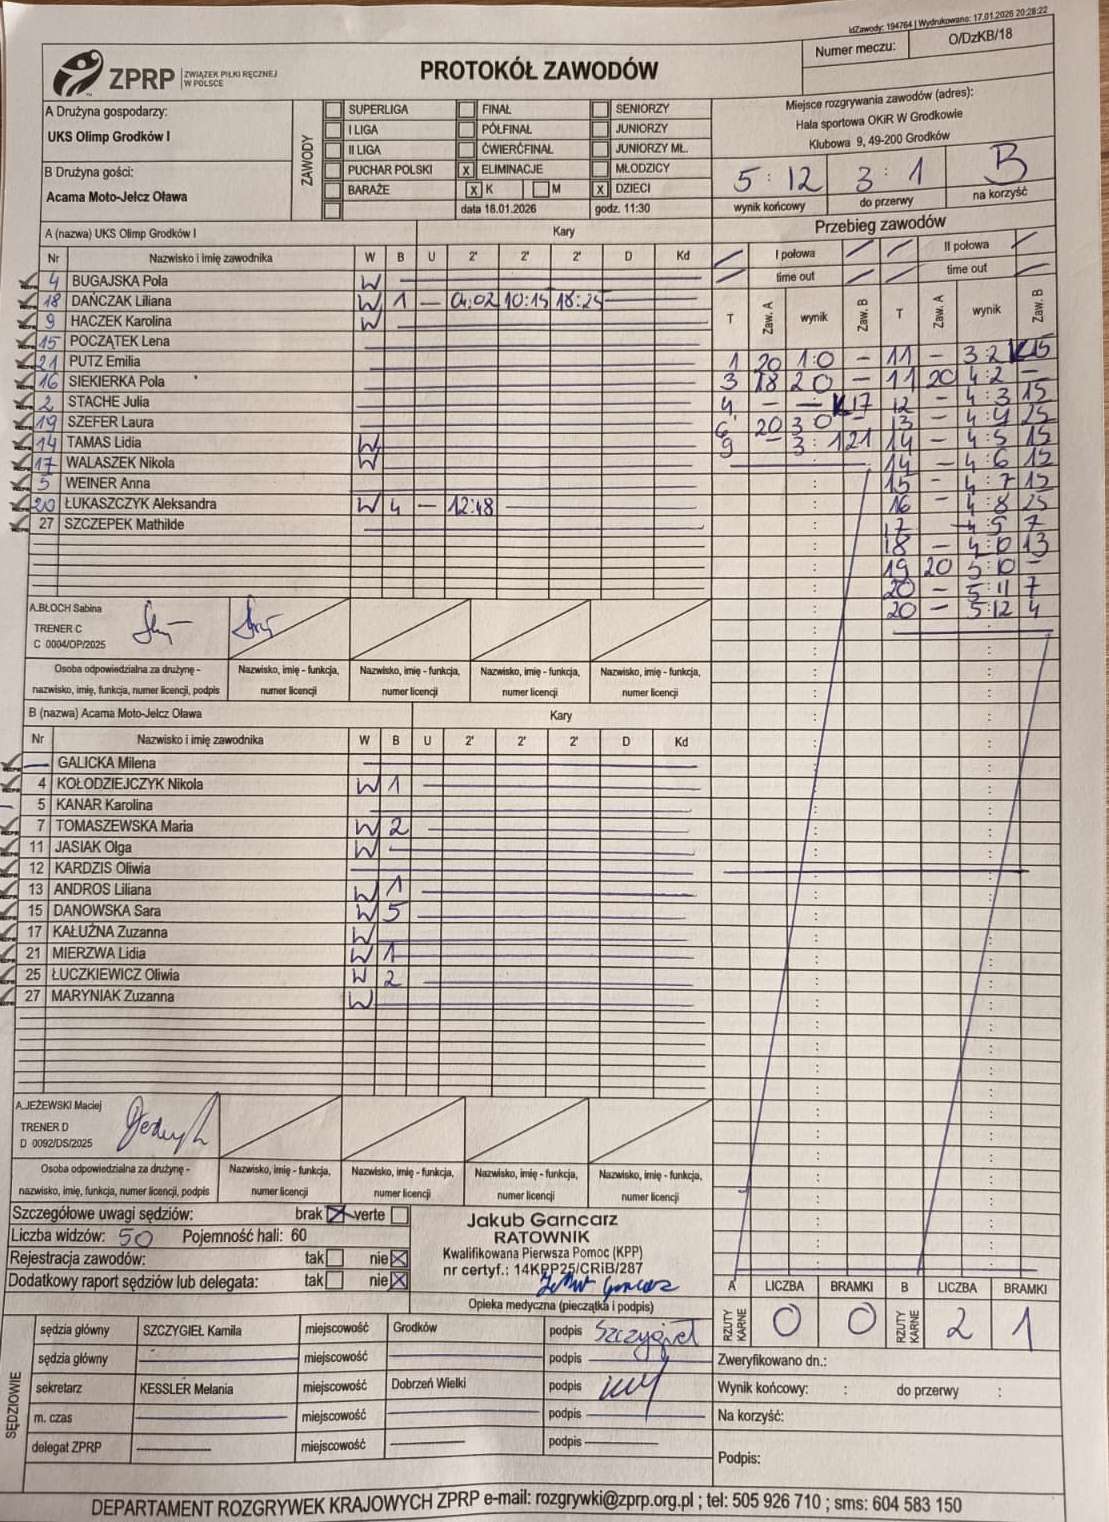 idZawody: 194764 | Wydrukowano: 17.01.2026 20:28:22
ZPRP ZWIĄZEK PIŁKI RĘCZNEJ W POLSCE
PROTOKÓŁ ZAWODÓW
Numer meczu: O/DzKB/18
A Drużyna gospodarzy:
UKS Olimp Grodków I
B Drużyna gości:
Acama Moto-Jelcz Oława
ZAWODY
SUPERLIGA FINAŁ SENIORZY
I LIGA PÓŁFINAŁ JUNIORZY
II LIGA ĆWIERĆFINAŁ JUNIORZY MŁ.
PUCHAR POLSKI x ELIMINACJE MŁODZICY
BARAŻE x K M x DZIECI
data 18.01.2026 godz. 11:30
Miejsce rozgrywania zawodów (adres):
Hala sportowa OKiR W Grodkowie
Klubowa 9, 49-200 Grodków
5 : 12 3 : 1 B
wynik końcowy do przerwy na korzyść
A (nazwa) UKS Olimp Grodków I Kary
Nr Nazwisko i imię zawodnika W B U 2' 2' 2' D Kd
4 BUGAJSKA Pola W
18 DAŃCZAK Liliana W 1 — 04:02 10:15 18:25
9 HACZEK Karolina W
15 POCZĄTEK Lena
21 PUTZ Emilia
16 SIEKIERKA Pola
2 STACHE Julia
19 SZEFER Laura
14 TAMAS Lidia W
17 WALASZEK Nikola W
5 WEINER Anna
20 ŁUKASZCZYK Aleksandra W 4 — 12:48
27 SZCZEPEK Mathilde
A.BŁOCH Sabina
TRENER C
C 0004/OP/2025
Osoba odpowiedzialna za drużynę - nazwisko, imię, funkcja, numer licencji, podpis
Nazwisko, imię - funkcja, numer licencji
Nazwisko, imię - funkcja, numer licencji
Nazwisko, imię - funkcja, numer licencji
Nazwisko, imię - funkcja, numer licencji
B (nazwa) Acama Moto-Jelcz Oława Kary
Nr Nazwisko i imię zawodnika W B U 2' 2' 2' D Kd
— GALICKA Milena
4 KOŁODZIEJCZYK Nikola W 1
5 KANAR Karolina
7 TOMASZEWSKA Maria W 2
11 JASIAK Olga W
12 KARDZIS Oliwia
13 ANDROS Liliana W 1
15 DANOWSKA Sara W 5
17 KAŁUŻNA Zuzanna W
21 MIERZWA Lidia W 1
25 ŁUCZKIEWICZ Oliwia W 2
27 MARYNIAK Zuzanna W
A.JEŻEWSKI Maciej
TRENER D
D 0092/DS/2025
Osoba odpowiedzialna za drużynę - nazwisko, imię, funkcja, numer licencji, podpis
Nazwisko, imię - funkcja, numer licencji
Nazwisko, imię - funkcja, numer licencji
Nazwisko, imię - funkcja, numer licencji
Nazwisko, imię - funkcja, numer licencji
Przebieg zawodów
I połowa II połowa
time out time out
T Zaw. A wynik Zaw. B T Zaw. A wynik Zaw. B
1 20 1:0 — 11 — 3:2 K15
3 18 2:0 — 11 20 4:2 —
4 — — K17 12 — 4:3 15
6 20 3:0 — 13 — 4:4 25
9 — 3:1 21 14 — 4:5 15
14 — 4:6 15
15 — 4:7 15
16 — 4:8 25
17 — 4:9 7
18 — 4:10 13
19 20 5:10 —
20 — 5:11 7
20 — 5:12 4
Szczegółowe uwagi sędziów: brak x verte
Liczba widzów: 50 Pojemność hali: 60
Rejestracja zawodów: tak nie x
Dodatkowy raport sędziów lub delegata: tak nie x
Jakub Garncarz
RATOWNIK
Kwalifikowana Pierwsza Pomoc (KPP)
nr certyf.: 14KPP25/CRiB/287
Opieka medyczna (pieczątka i podpis)
A LICZBA BRAMKI B LICZBA BRAMKI
RZUTY KARNE 0 0 RZUTY KARNE 2 1
SĘDZIOWIE
sędzia główny SZCZYGIEŁ Kamila miejscowość Grodków podpis Szczygieł
sędzia główny miejscowość podpis
sekretarz KESSLER Melania miejscowość Dobrzeń Wielki podpis
m. czas miejscowość podpis
delegat ZPRP miejscowość podpis
Zweryfikowano dn.:
Wynik końcowy: : do przerwy :
Na korzyść:
Podpis:
DEPARTAMENT ROZGRYWEK KRAJOWYCH ZPRP e-mail: rozgrywki@zprp.org.pl ; tel: 505 926 710 ; sms: 604 583 150